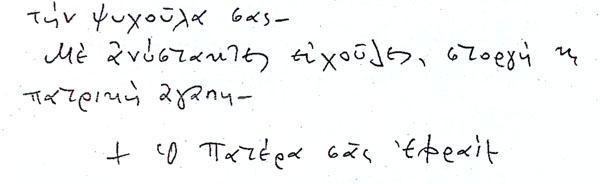 τήν ψυχούλα σας–
Μέ ἀνύστακτες εὐχοῦλες, στοργή κ
πατρική ἀγάπη–
+ Ὁ πατέρα σᾶς Ἐφραίμ